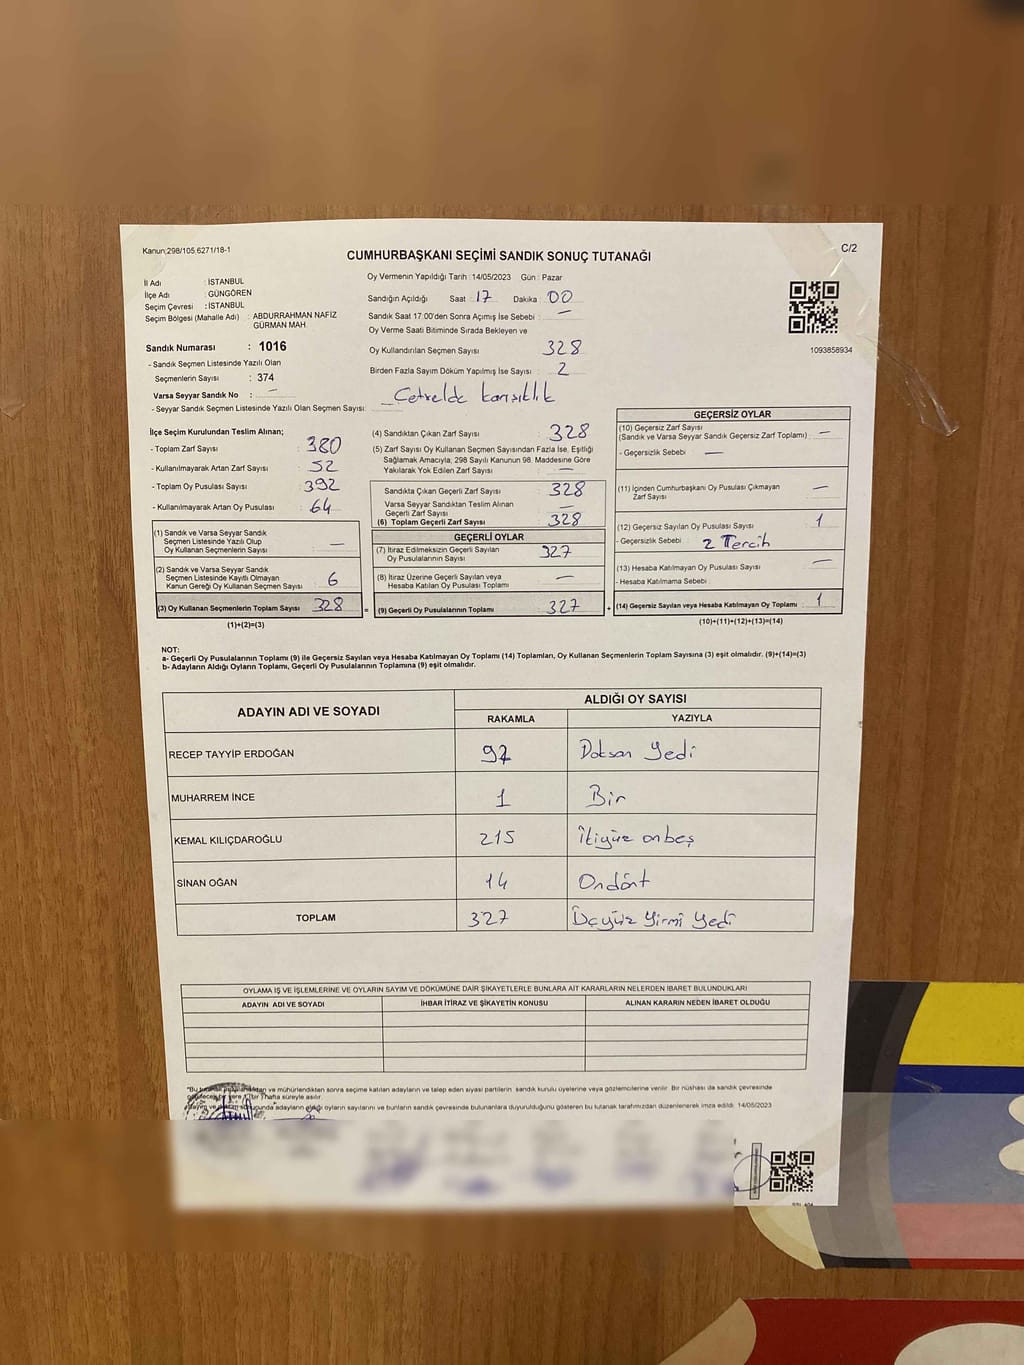 Kanun;298/105,6271/18-1
C/2
CUMHURBAŞKANI SEÇİMİ SANDIK SONUÇ TUTANAĞI
İl Adı : İSTANBUL
İlçe Adı : GÜNGÖREN
Seçim Çevresi : İSTANBUL
Seçim Bölgesi (Mahalle Adı) : ABDURRAHMAN NAFİZ
GÜRMAN MAH
Sandık Numarası : 1016
- Sandık Seçmen Listesinde Yazılı Olan
Seçmenlerin Sayısı : 374
Varsa Seyyar Sandık No : —
- Seyyar Sandık Seçmen Listesinde Yazılı Olan Seçmen Sayısı:
Oy Vermenin Yapıldığı Tarih :14/05/2023 Gün : Pazar
Sandığın Açıldığı Saat : 17 Dakika : 00
Sandık Saat 17:00'den Sonra Açımış İse Sebebi : —
Oy Verme Saati Bitiminde Sırada Bekleyen ve
Oy Kullandırılan Seçmen Sayısı 328
Birden Fazla Sayım Döküm Yapılmış İse Sayısı : 2
Çetvelde karışıklık
1093858934
İlçe Seçim Kurulundan Teslim Alınan;
- Toplam Zarf Sayısı : 380
- Kullanılmayarak Artan Zarf Sayısı : 52
- Toplam Oy Pusulası Sayısı : 392
- Kullanılmayarak Artan Oy Pusulası : 64
(1) Sandık ve Varsa Seyyar Sandık
Seçmen Listesinde Yazılı Olup
Oy Kullanan Seçmenlerin Sayısı : —
(2) Sandık ve Varsa Seyyar Sandık
Seçmen Listesinde Kayıtlı Olmayan
Kanun Gereği Oy Kullanan Seçmen Sayısı : 6
(3) Oy Kullanan Seçmenlerin Toplam Sayısı : 328 =
(1)+(2)=(3)
(4) Sandıktan Çıkan Zarf Sayısı : 328
(5) Zarf Sayısı Oy Kullanan Seçmen Sayısından Fazla İse, Eşitliği
Sağlamak Amacıyla, 298 Sayılı Kanunun 98. Maddesine Göre
Yakılarak Yok Edilen Zarf Sayısı : —
Sandıkta Çıkan Geçerli Zarf Sayısı : 328
Varsa Seyyar Sandıktan Teslim Alınan
Geçerli Zarf Sayısı : —
(6) Toplam Geçerli Zarf Sayısı : 328
GEÇERLİ OYLAR
(7) İtiraz Edilmeksizin Geçerli Sayılan
Oy Pusulalarının Sayısı : 327
(8) İtiraz Üzerine Geçerli Sayılan veya
Hesaba Katılan Oy Pusulası Toplamı : —
(9) Geçerli Oy Pusulalarının Toplamı : 327 +
GEÇERSİZ OYLAR
(10) Geçersiz Zarf Sayısı
(Sandık ve Varsa Seyyar Sandık Geçersiz Zarf Toplamı) : —
- Geçersizlik Sebebi : —
(11) İçinden Cumhurbaşkanı Oy Pusulası Çıkmayan
Zarf Sayısı : —
(12) Geçersiz Sayılan Oy Pusulası Sayısı : 1
- Geçersizlik Sebebi : 2 Tercih
(13) Hesaba Katılmayan Oy Pusulası Sayısı : —
- Hesaba Katılmama Sebebi :
(14) Geçersiz Sayılan veya Hesaba Katılmayan Oy Toplamı : 1
(10)+(11)+(12)+(13)=(14)
NOT:
a- Geçerli Oy Pusulalarının Toplamı (9) ile Geçersiz Sayılan veya Hesaba Katılmayan Oy Toplamı (14) Toplamları, Oy Kullanan Seçmenlerin Toplam Sayısına (3) eşit olmalıdır. (9)+(14)=(3)
b- Adayların Aldığı Oyların Toplamı, Geçerli Oy Pusulalarının Toplamına (9) eşit olmalıdır.
ADAYIN ADI VE SOYADI
ALDIĞI OY SAYISI
RAKAMLA YAZIYLA
RECEP TAYYİP ERDOĞAN 97 Doksan Yedi
MUHARREM İNCE 1 Bir
KEMAL KILIÇDAROĞLU 215 İkiyüz onbeş
SİNAN OĞAN 14 Ondört
TOPLAM 327 Üçyüz Yirmi Yedi
OYLAMA İŞ VE İŞLEMLERİNE VE OYLARIN SAYIM VE DÖKÜMÜNE DAİR ŞİKAYETLERLE BUNLARA AİT KARARLARIN NELERDEN İBARET BULUNDUKLARI
ADAYIN ADI VE SOYADI İHBAR İTİRAZ VE ŞİKAYETİN KONUSU ALINAN KARARIN NEDEN İBARET OLDUĞU
ve mühürlendikten sonra seçime katılan adayların ve talep eden siyasi partilerin sandık kurulu üyelerine veya gözlemcilerine verilir. Bir nüshası da sandık çevresinde
yere 1 hafta süreyle asılır.
adayların aldığı oyların sayılarını ve bunların sandık çevresinde bulunanlara duyurulduğunu gösteren bu tutanak tarafımızdan düzenlenerek imza edildi. 14/05/2023